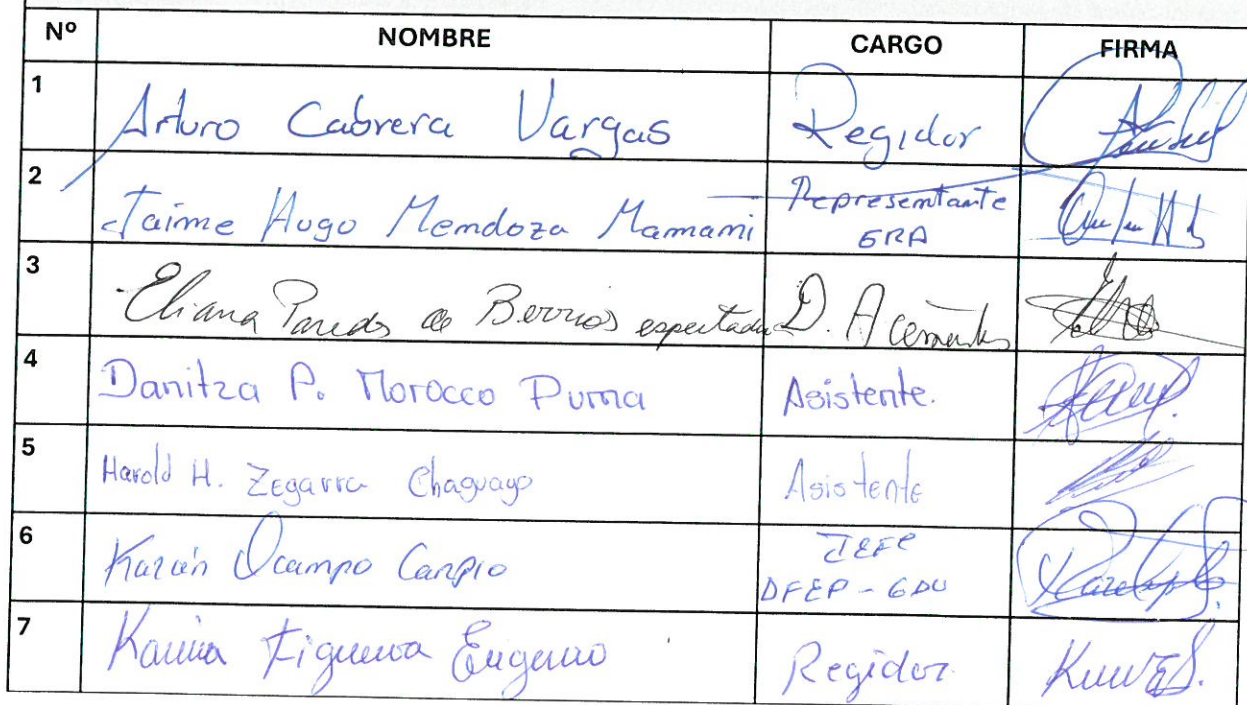 Nº NOMBRE CARGO FIRMA
1 Arturo Cabrera Vargas Regidor
2 Jaime Hugo Mendoza Mamami Representante GRA
3 Eliana Paredes de Berrios D. A
4 Danitza P. Morocco Puma Asistente.
5 Harold H. Zegarra Chaguayo Asistente
6 Karen Ocampo Carpio JEFE
DFEP - GDU
7 Karina Figueroa Eugenio Regidor